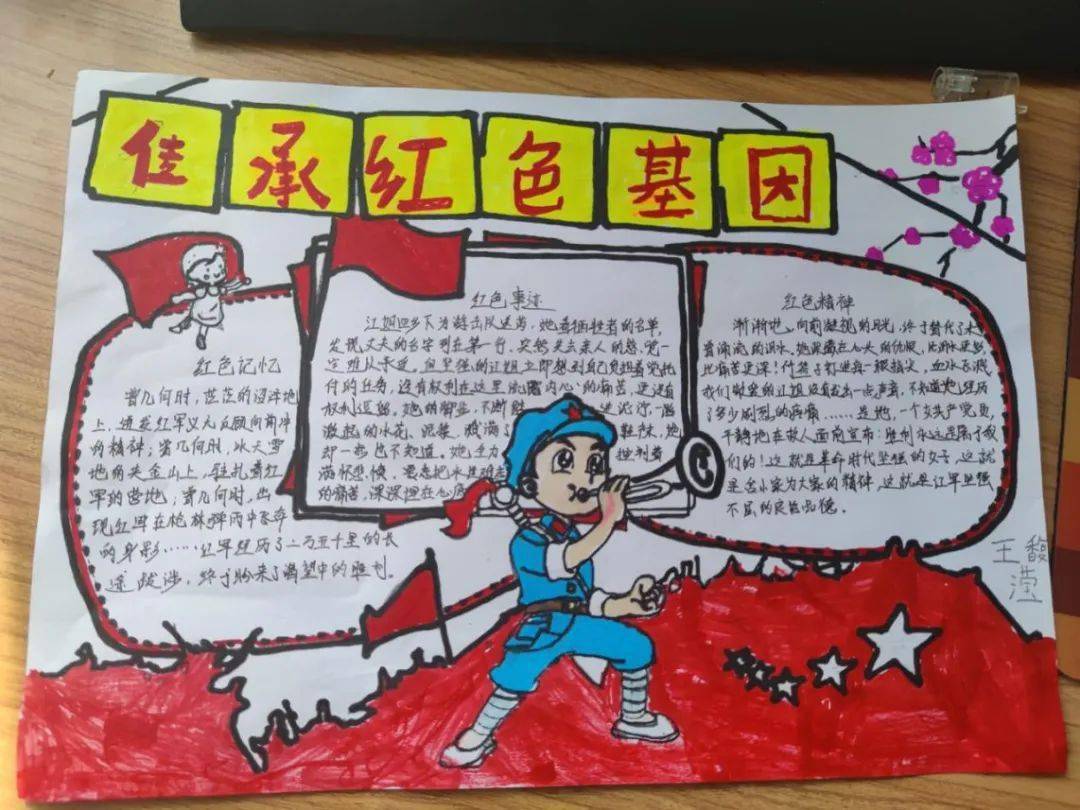 传承红色基因
红色记忆
曾几何时,茫茫的沼泽地
上,进发红军义无反顾向前冲
的精神;曾几何时,冰天雪
地的夹金山上,驻扎着红
军的营地;曾几何时,出
现红军在枪林弹雨中飞奔
的身影……红军经历了二万五千里的长
途跋涉,终于盼来了渴望中的胜利。
红色事迹
江姐回乡下为游击队送药,她看牺牲者的名单,
发现丈夫的名字列在第一行,突然失去亲人的
难以承受。但坚强的江姐立即想到自己负担着党托
付的任务,没有权利在这里流露内心的痛苦,更没有
权利逗留。她的脚步,不断
激起的水花、泥浆,溅满了 鞋袜,她
却一点也不知道。她正力
满怀悲愤,要忘把
的痛苦,深深埋在心底
红色精神
渐渐地,向前凝视的目光,终于替代了未
曾涌流的泪水。她深藏在心头的仇恨,比泪水更多,
比痛苦更深!竹签子钉进每一根指尖,血水飞溅
我们敬爱的江姐没有发出一点声音,不知道她经历
了多少剧烈的疼痛……是她,一个女共产党员,
平静地在敌人面前宣布:胜利永远是属于我
们的!这就是革命时代坚强的女子,这就
是舍小家为大家的精神,这就是江军坚强
不屈的良好品德。
王馥滢